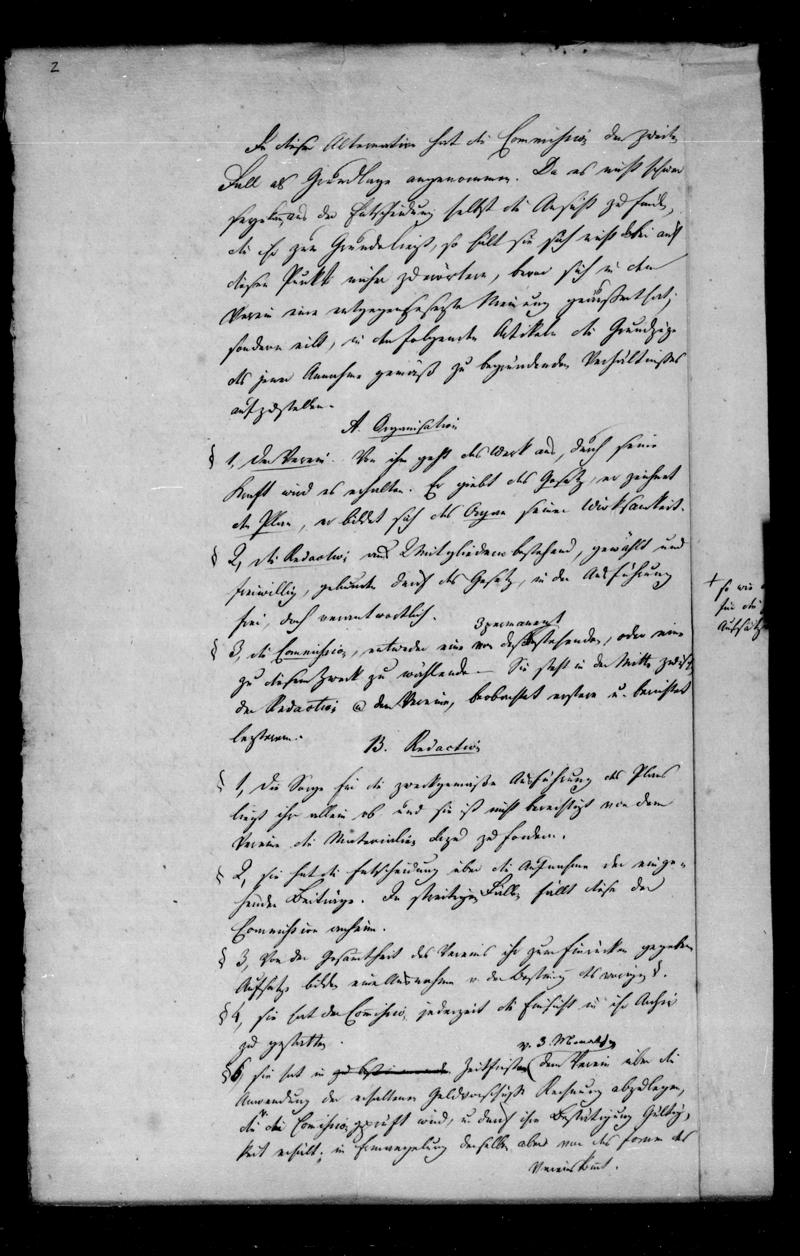 2
In dieser Alternative hat die Commission den zweiten
Fall als Grundlage angenommen. Da es nicht schwer
aus der Entscheidung selbst die Ansicht zu finden,
die ihr zum Grunde liegt, so hält sie sich nicht auf
diesen Punkt näher zu erörtern, bevor sich in dem
Verein eine entgegengesetzte Meinung geäußert hat;
sondern eilt, in den folgenden Artikeln die Grundzüge
des jener Annahme gemäß zu begründenden Verhältnisses
aufzustellen.
A. Organisation
§ 1, Der Verein. Von ihm geht das Werk aus, durch seine
Kraft wird es erhalten. Er giebt das Gesetz, er zeichnet
den Plan, er bildet sich das Organ seiner Wirksamkeit.
§ 2, die Redaction aus 2 Mitgliedern bestehend, gewählt und
freiwillig, gebunden durch das Gesetz, in der Ausführung
frei, doch verantwortlich.
+ so wie
für die
Aufsätze
3 permanent
§ 3, die Commission, entweder eine von bestehende, oder eine
zu diesem Zweck zu wählende — Sie steht in der Mitte zwischen
der Redaction & dem Verein, beobachtet erstere u. berichtet
letzterem.
B. Redaction
§ 1, Die Sorge für die zweckgemäße Ausführung des Plans
liegt ihr allein ob und sie ist nicht berechtigt von dem
Vereine die Materialien dazu zu fordern.
§ 2, sie hat die Entscheidung über die Aufnahme der einge-
henden Beiträge. In streitigen Fällen fällt diese der
Commission anheim.
§ 3, Von der Gesamtheit des Vereins ihr zum Einrücken gegebene
Aufsätze bilden eine Ausnahme v. der Bestimmung des vorigen §.
§ 4, sie hat der Commission jederzeit die Einsicht in ihr Archiv
zu gestatten.
v. 3 Monaten
§ 6 sie hat in zu bestimmenden Zeitfristen dem Verein über die
Anwendung der erhaltenen Geldvorschüsse Rechnung abzulegen,
die von der Commission geprüft wird, u. durch ihre Bestätigung Gültig-
keit erhält; in Ermangelung derselben aber vor das Forum des
Vereins kommt.